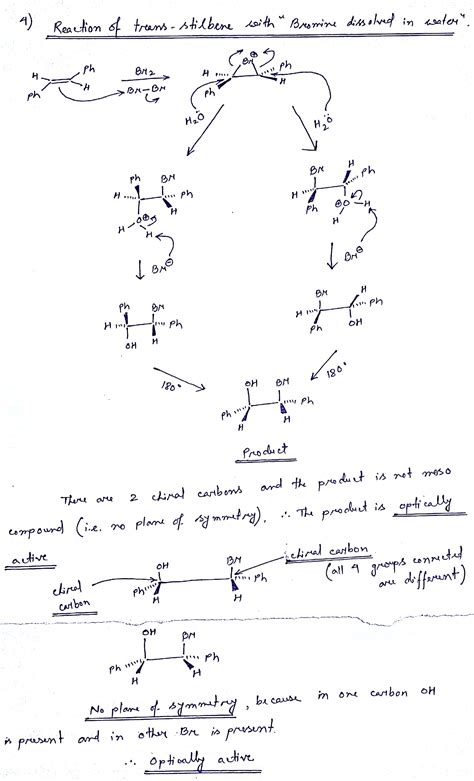 4) Reaction of trans-stilbene with "Bromine dissolved in water".
H Ph Br2 Br H Ph
Ph H Br-Br H Ph
H2O H2O
Ph Br Br H
H Ph H Ph
H Ph
H O H O H
H H
Br⊖ Br⊖
Ph Br Br H
H Ph H Ph
OH H Ph OH
180° 180°
OH Br
Ph Ph
H H
Product
There are 2 chiral carbons and the product is not meso
compound (i.e. no plane of symmetry). ∴ The product is optically
active
OH Br chiral carbon
Ph Ph (all 4 groups connected
chiral H H are different)
carbon
OH Br
Ph Ph
H H
No plane of symmetry, because in one carbon OH
is present and in other Br is present.
∴ optically active